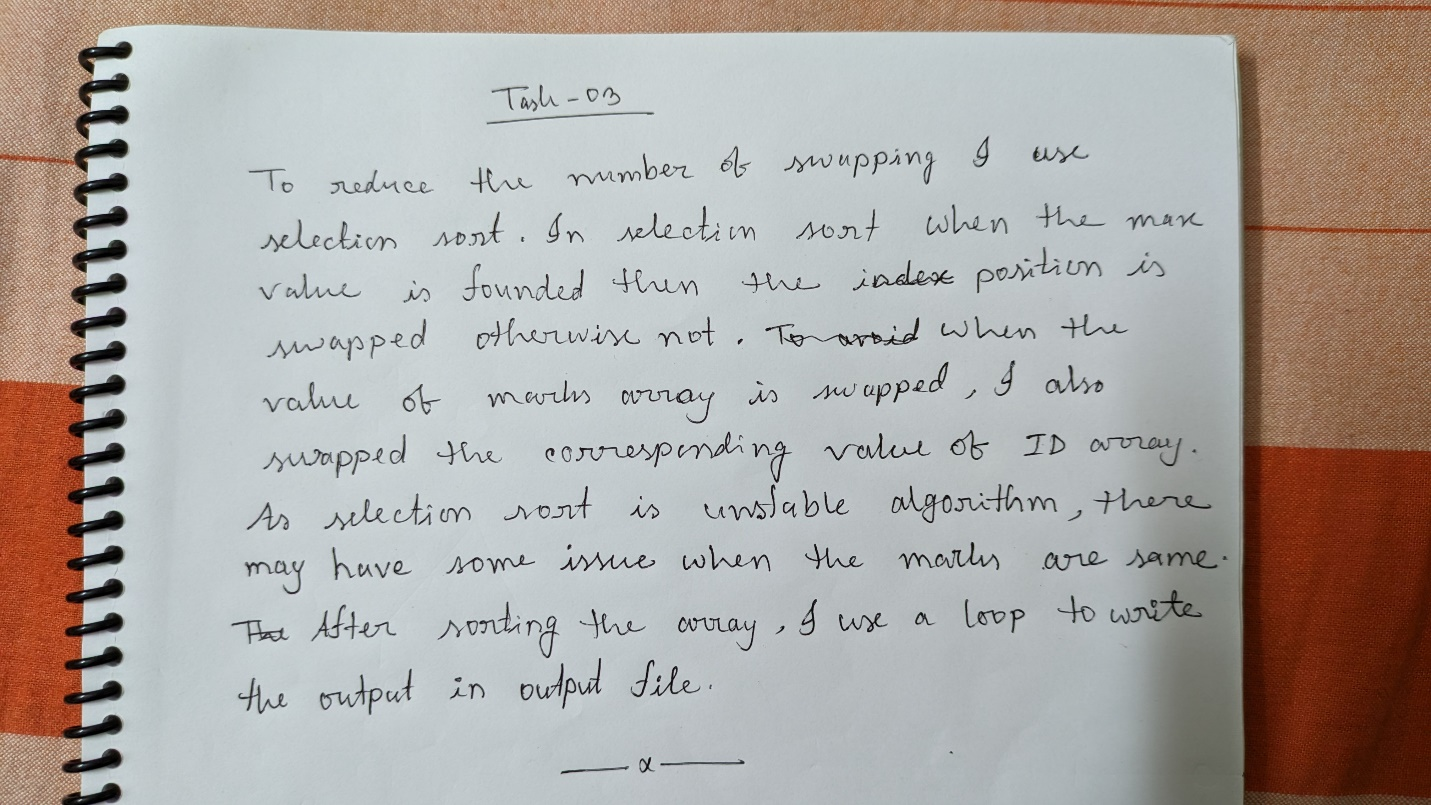 Task-03
To reduce the number of swapping I use
selection sort. In selection sort when the max
value is founded then the index position is
swapped otherwise not. To avoid when the
value of marks array is swapped, I also
swapped the corresponding value of ID array.
As selection sort is unstable algorithm, there
may have some issue when the marks are same.
The After sorting the array, I use a loop to write
the output in output file.